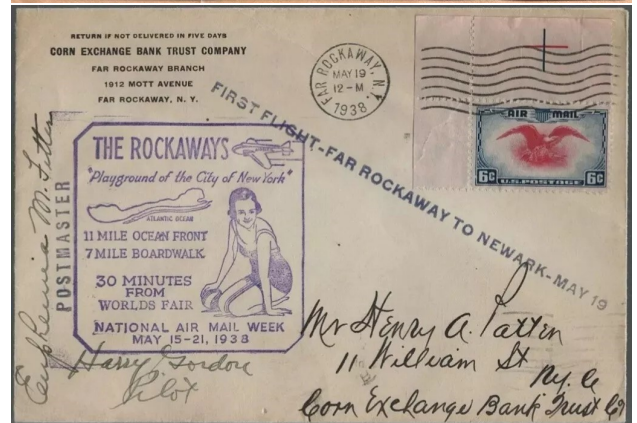 RETURN IF NOT DELIVERED IN FIVE DAYS
CORN EXCHANGE BANK TRUST COMPANY
FAR ROCKAWAY BRANCH
1912 MOTT AVENUE
FAR ROCKAWAY, N. Y.
FAR ROCKAWAY, N.Y.
MAY 19
12-M
1938
AIR MAIL
6c 6c
U.S. POSTAGE
FIRST FLIGHT-FAR ROCKAWAY TO NEWARK-MAY 19
THE ROCKAWAYS
"Playground of the City of New York"
ATLANTIC OCEAN
11 MILE OCEAN FRONT
7 MILE BOARDWALK
30 MINUTES
FROM
WORLDS FAIR
NATIONAL AIR MAIL WEEK
MAY 15-21, 1938
POSTMASTER
Euphemia M.
Harry Gordon
Pilot
Mr Henry A. Patten
11 William St
Ny. C
Corn Exchange Bank Trust Co